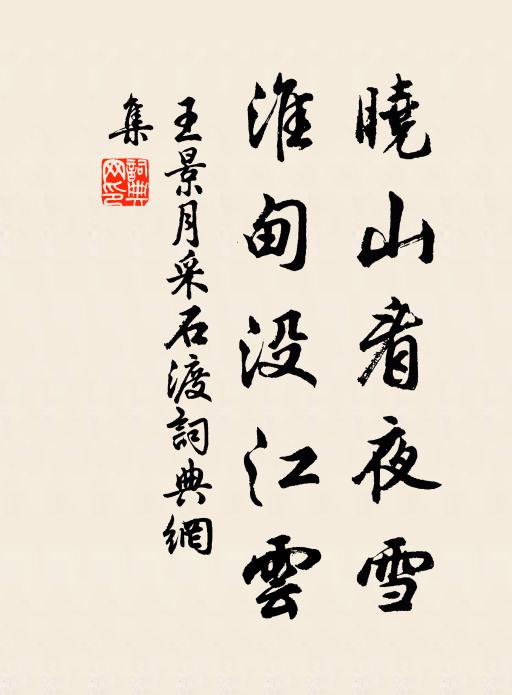 曉山看夜雪
淮甸没江雲
王景月采石渡詞典網
集
詞典網印